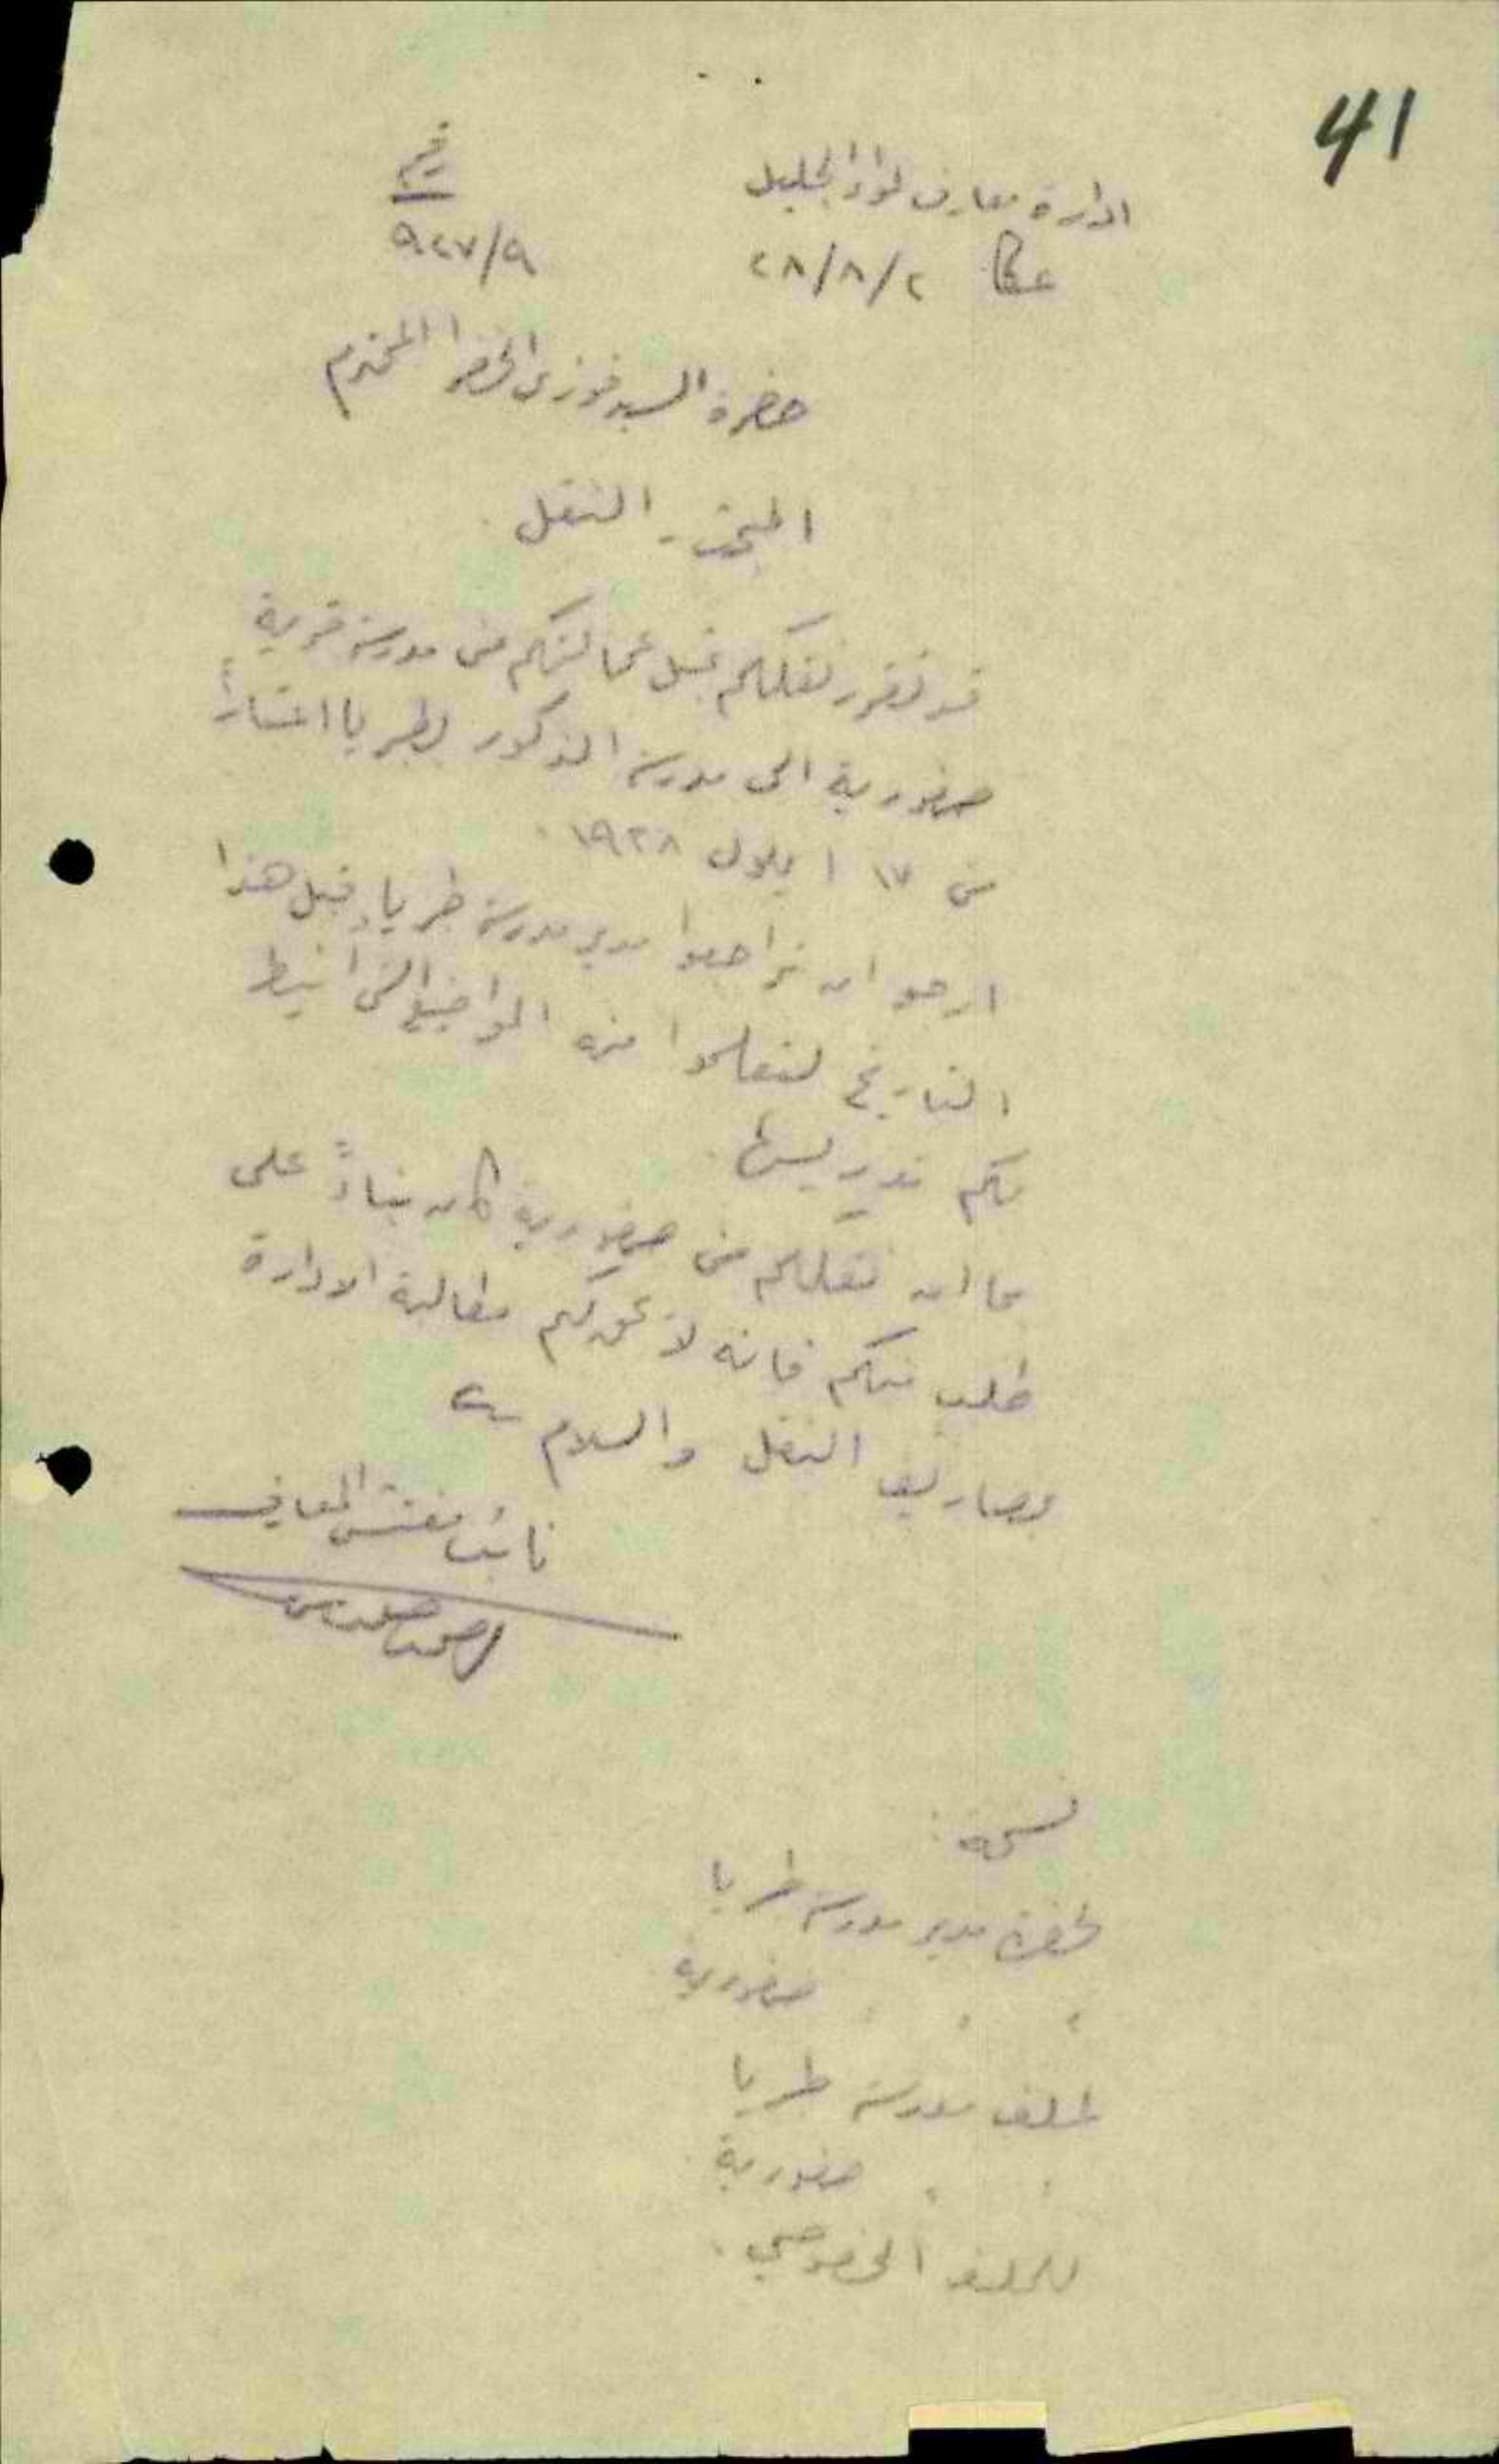 41
ادارة معارف لواء الجليل
عكا ٢/٨/٢٨
رقم
٩/٩٢٧
حضرة السيد فوزي الخضرا المحترم
المبحث - النقل
قد تقرر نقلكم بنسبل عمالتكم من مدرسة قرية
صفورية الى مدرسة الذكور بطبريا اعتباراً
من ١٧ ايلول ١٩٢٨.
ارجو ان تراجعوا مدير مدرسة طبريا قبل هذا
التاريخ لتعلموا منه المواضيع التي انيط
بكم تدريسها.
بما ان نقلكم من صفورية كان بناءً على
طلب منكم فانه لا يحق لكم مطالبة الادارة
بمصاريف النقل والسلام
نائب مفتش المعارف
نسخة:
لحضرة مدير مدرسة طبريا
" " صفورية
لملف مدرسة طبريا
" " صفورية
للملف الخصوصي.